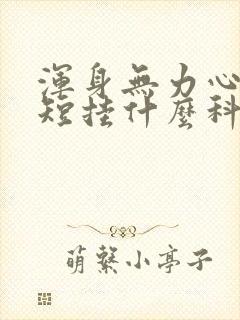 渾身無力心
短挂什麼科
萌繫小亭子